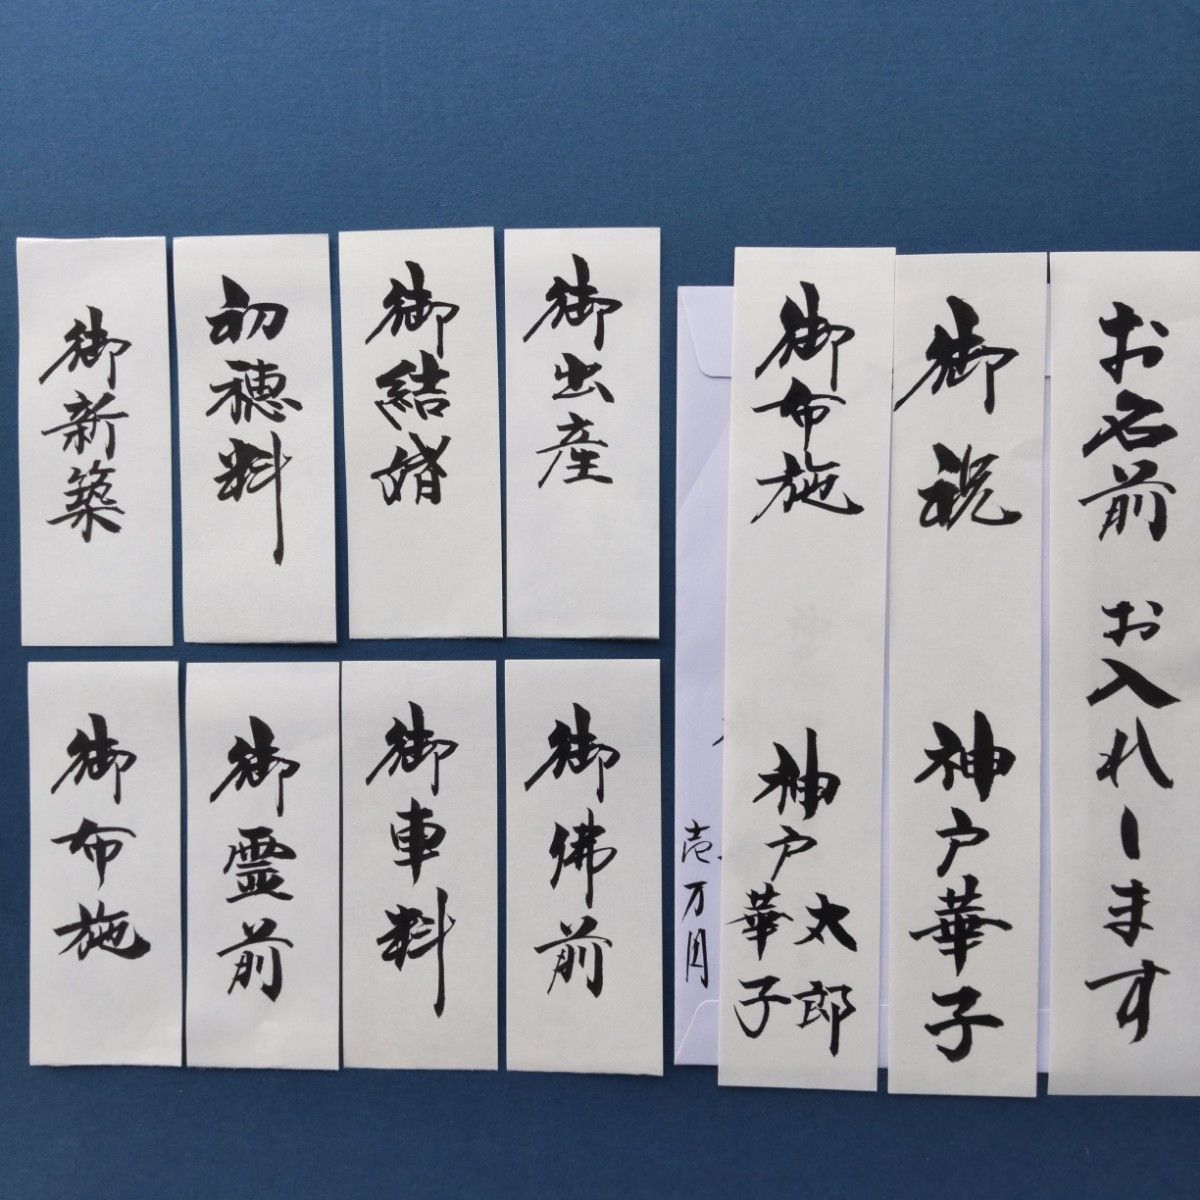 御新築
初穂料
御結婚
御出産
御布施
御霊前
御車料
御佛前
壱万円
御布施
神戸
太郎
華子
御祝
神戸華子
お名前 お入れします